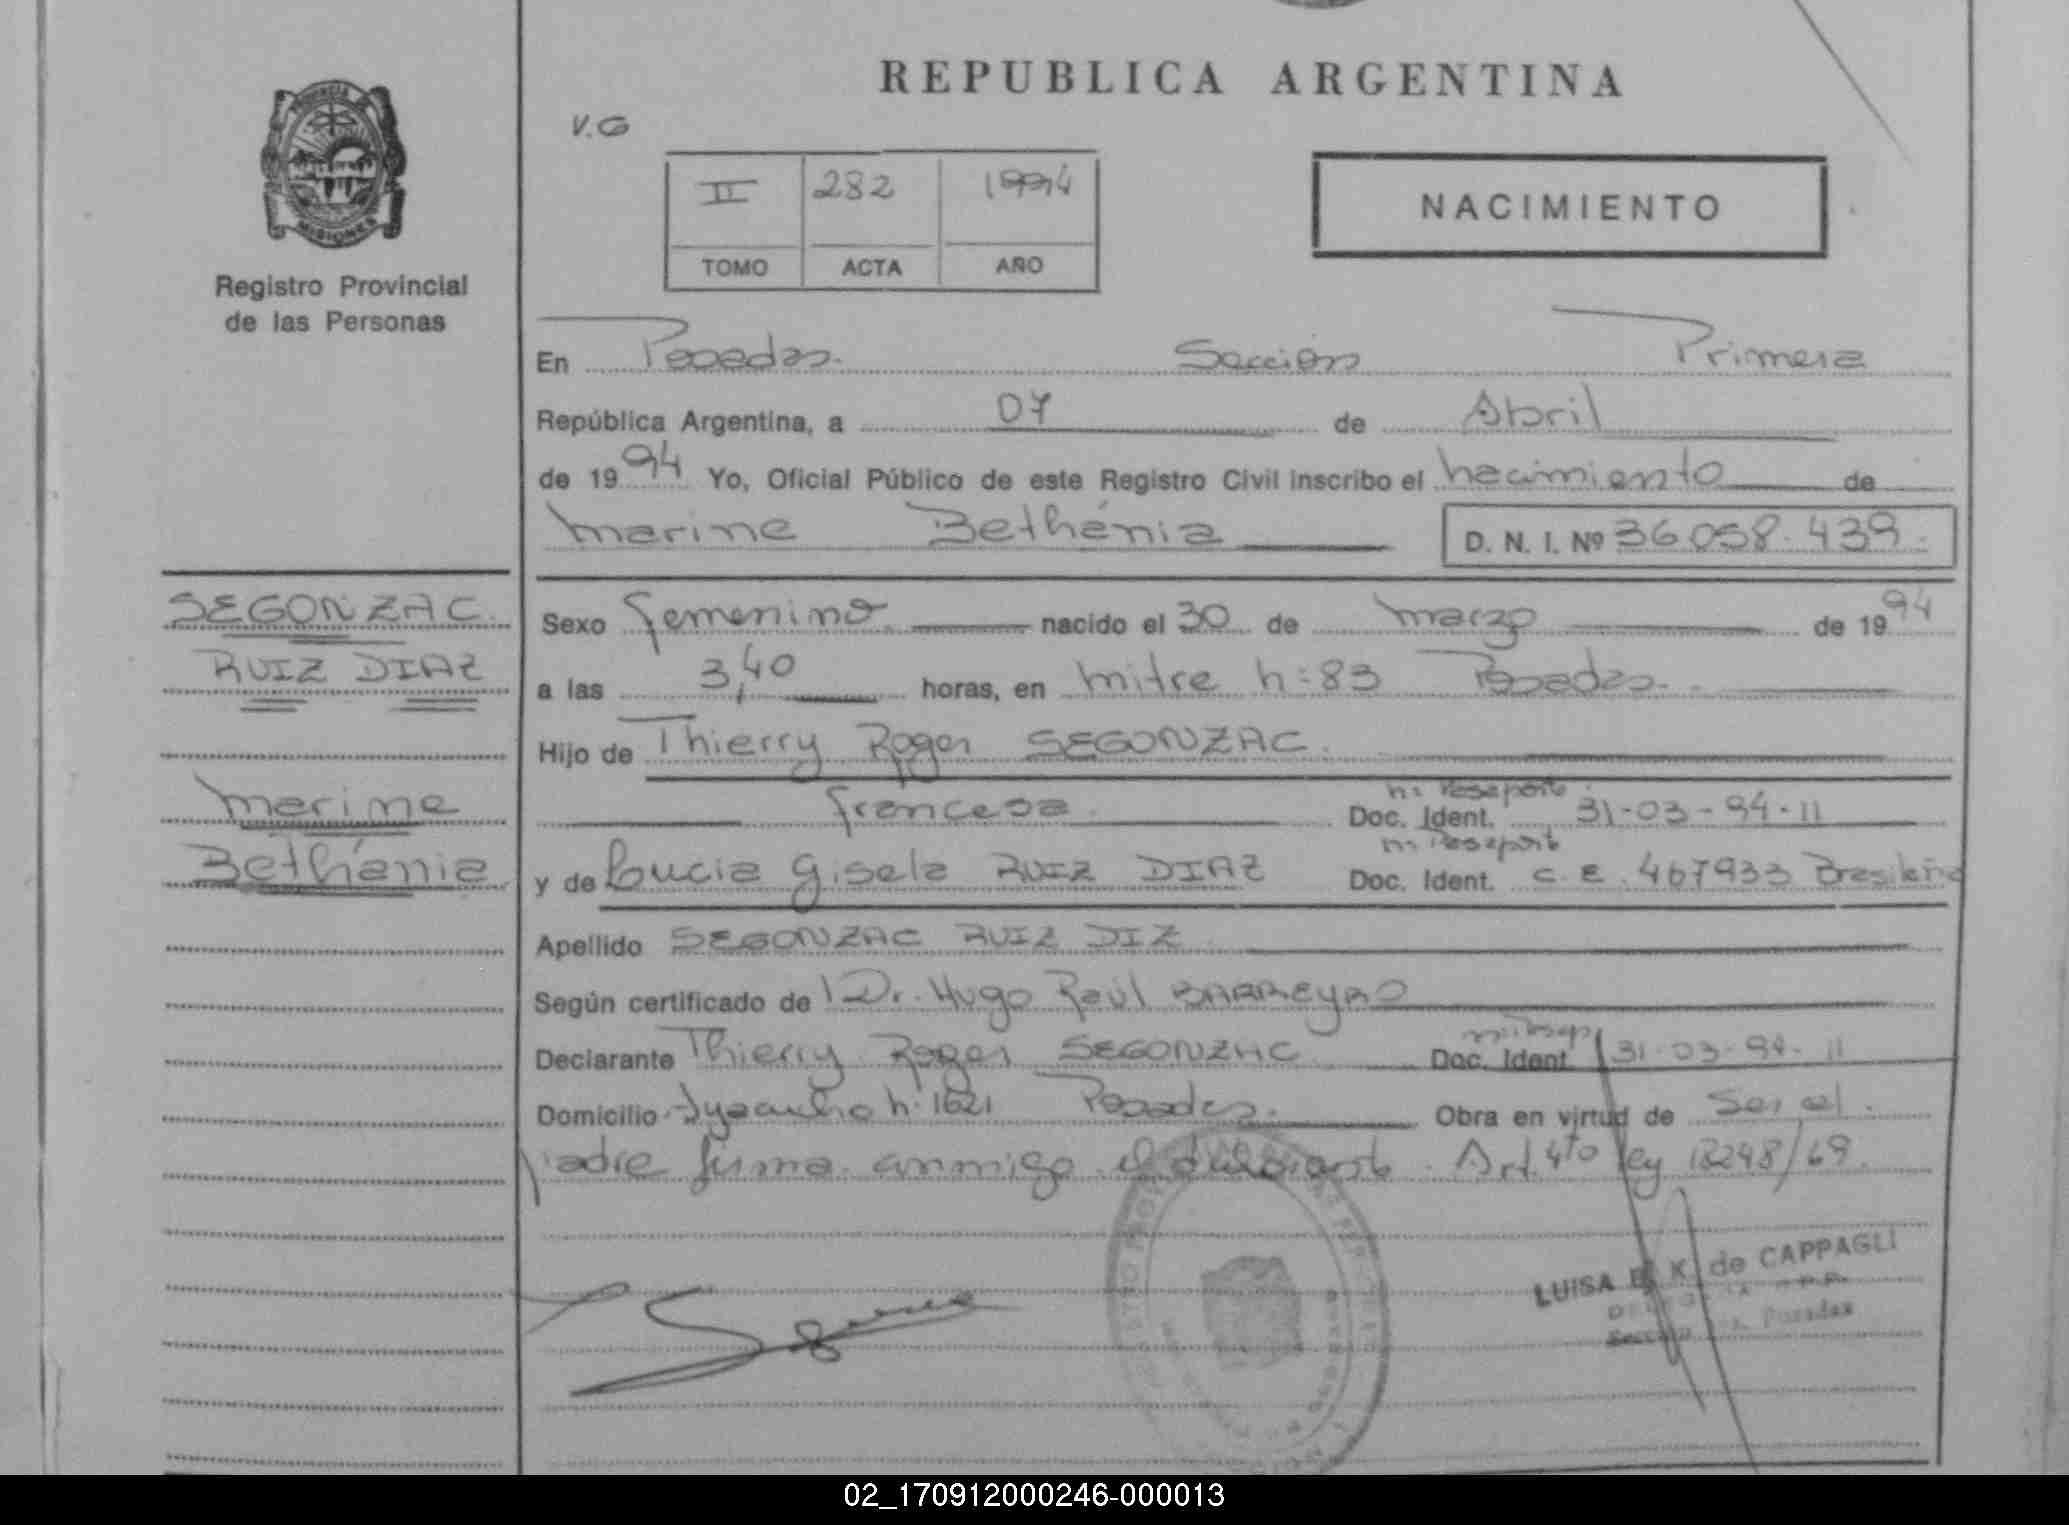 REPUBLICA ARGENTINA
PROVINCIA DE
MISIONES
Registro Provincial
de las Personas
V.G
II 282 1994
TOMO ACTA AÑO
NACIMIENTO
En Posadas. Sección Primera
República Argentina, a 07 de Abril
de 1994 Yo, Oficial Público de este Registro Civil inscribo el nacimiento de
Marine Bethénia D. N. I. Nº 36.058.439.
SEGONZAC.
RUIZ DIAZ
Marine
Bethénia
Sexo femenino nacido el 30 de marzo de 1994
a las 3,40 horas, en Mitre n: 83 Posadas.
Hijo de Thierry Roger SEGONZAC.
francesa. Doc. Ident. n: Pasaporte 31-03-94-11
y de Lucia Gisela RUIZ DIAZ Doc. Ident. n: Pasaporte C.E. 467933 Brasileña
Apellido SEGONZAC RUIZ DIZ
Según certificado de Dr. Hugo Raúl BARREYRO
Declarante Thierry Roger SEGONZAC Doc. Ident. 31-03-94-11
Domicilio Ayacucho n: 1621 Posadas. Obra en virtud de Ser el
padre firma conmigo el declarante. Art. 4to ley 18248/69.
LUISA E. K. de CAPPAGLI
Posadas
02_170912000246-000013